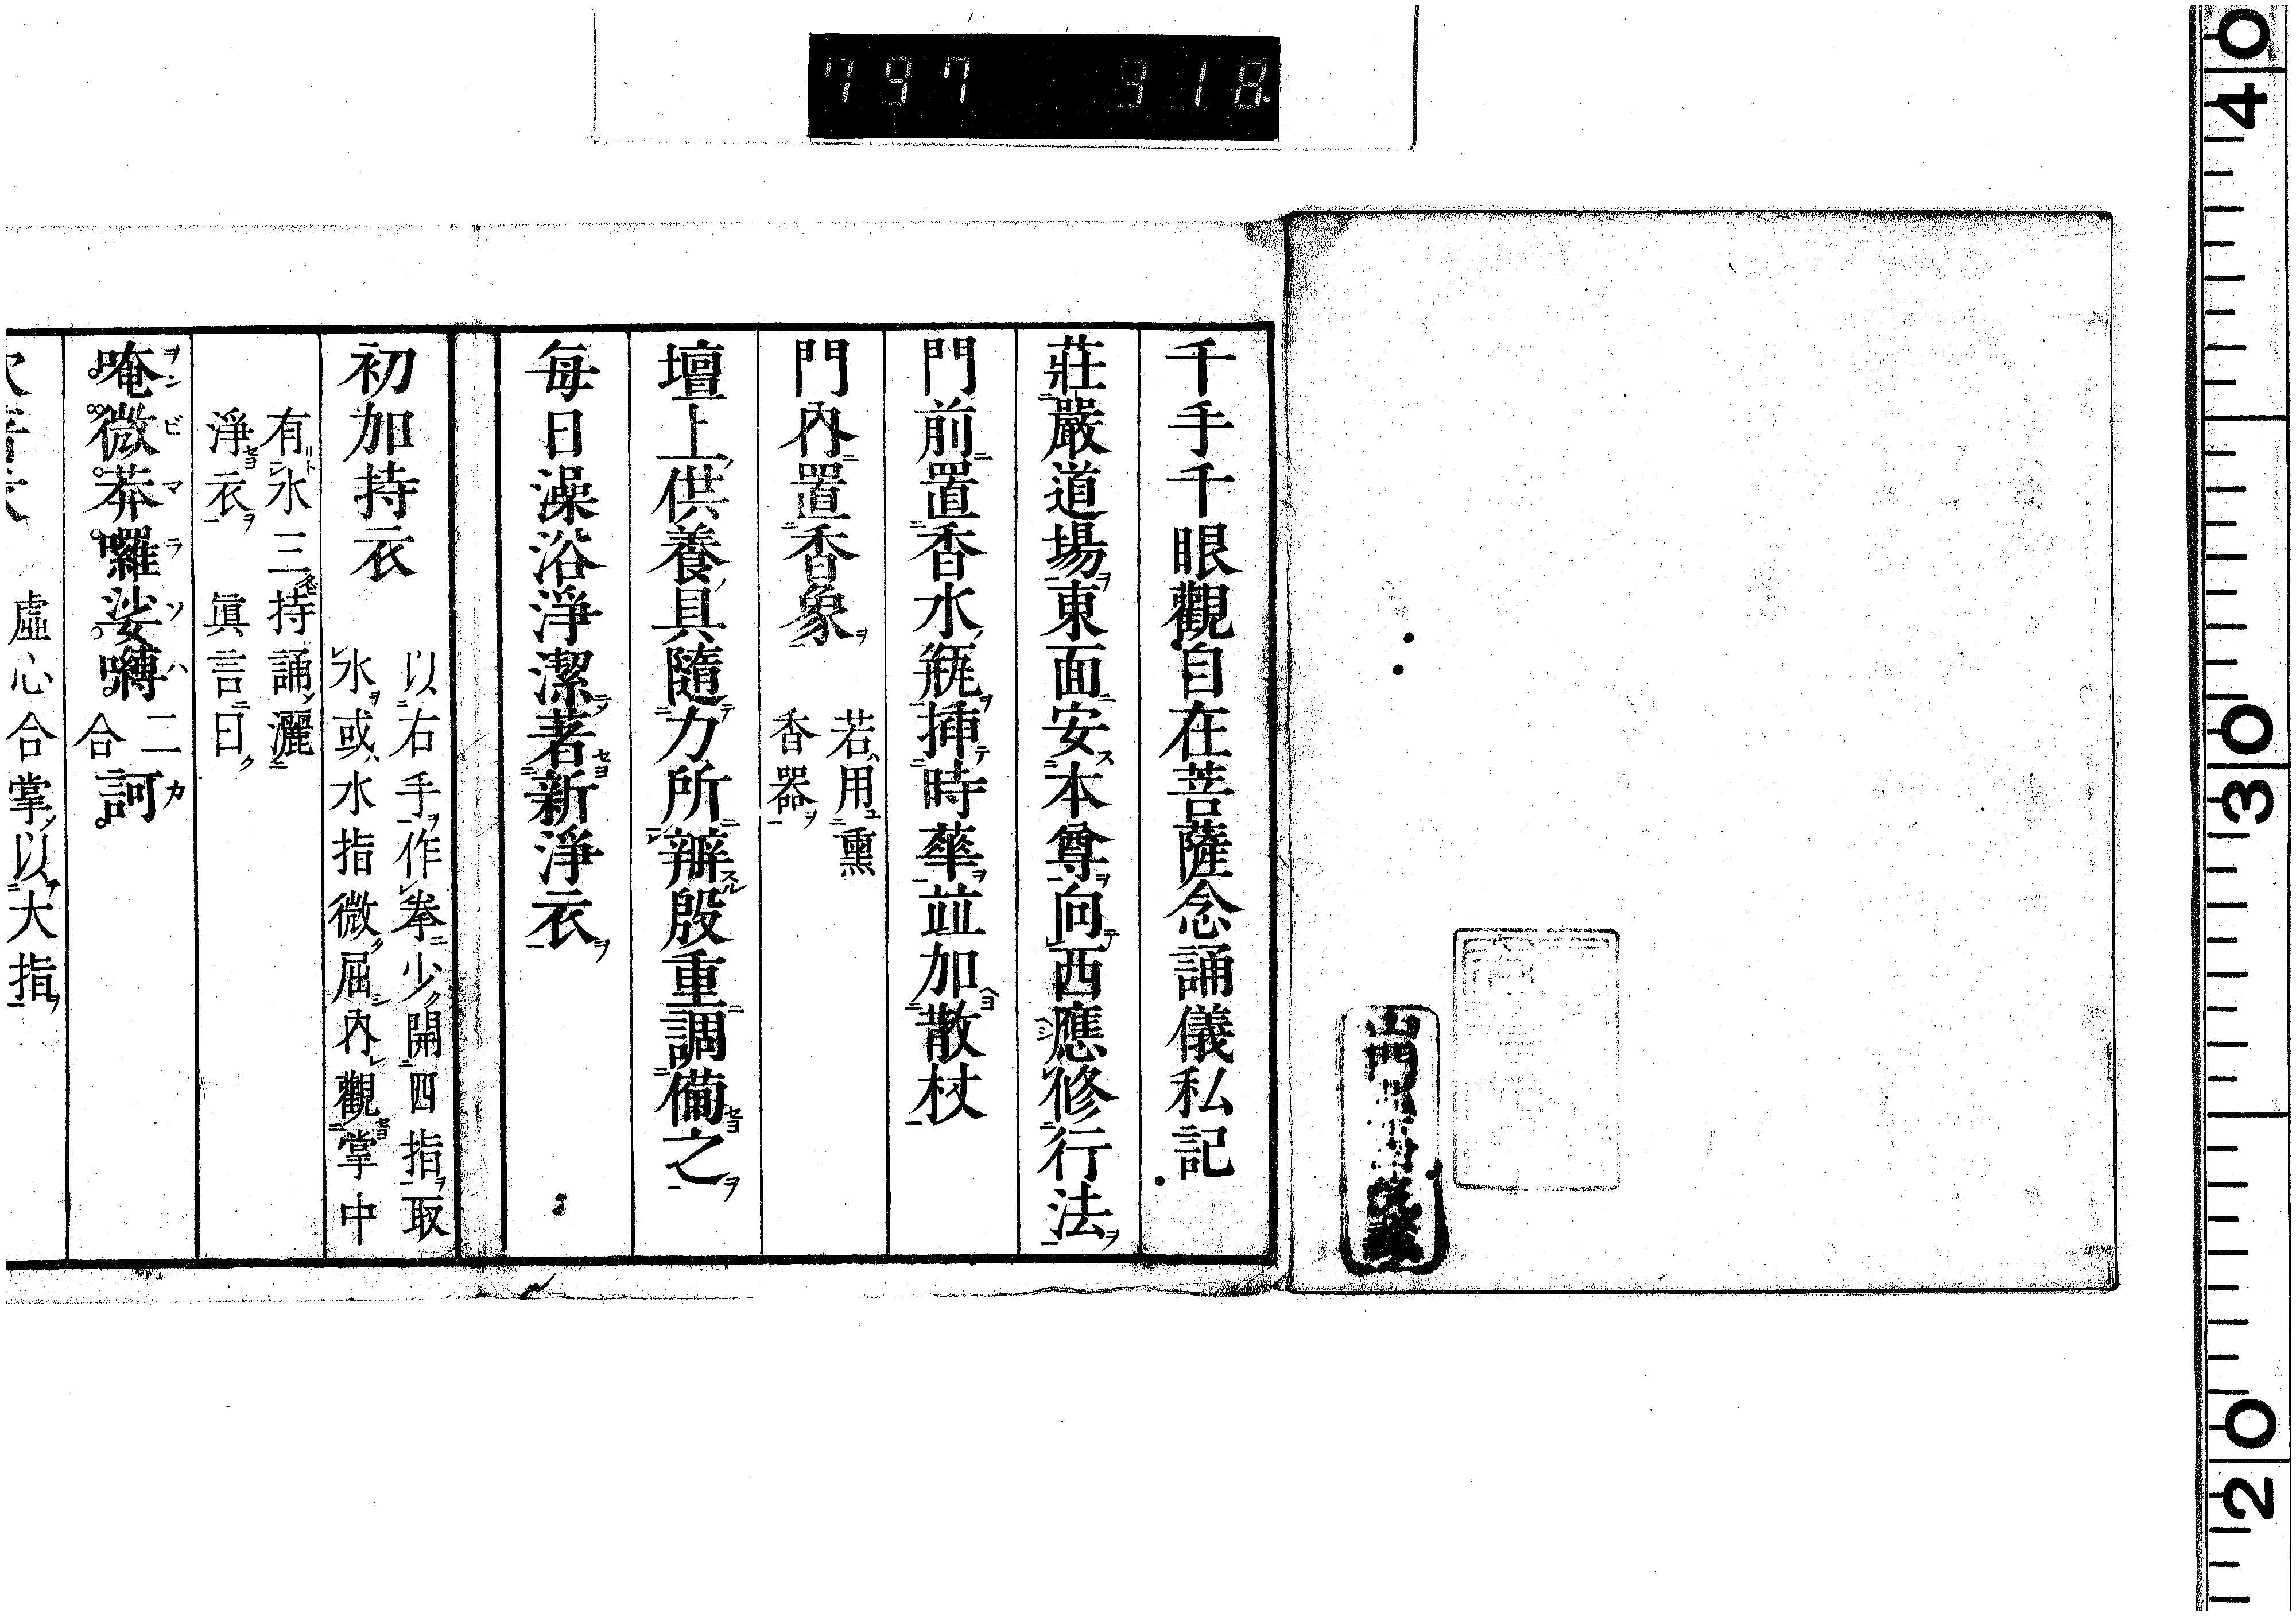 797 318
千手千眼觀自在菩薩念誦儀私記
莊嚴道場東面安本尊向西應修行法
門前置香水瓶挿時華並加散杖
門內置香象 若用熏
香器
壇上供養具隨力所辧殷重調備之
每日澡浴淨潔著新淨衣
初加持衣 以右手作拳少開四指取
水或水指微屈內觀掌中
有水三持誦灑
淨衣 眞言曰
唵微莽囉娑嚩二合訶
虛心合掌以大指
40
30
20